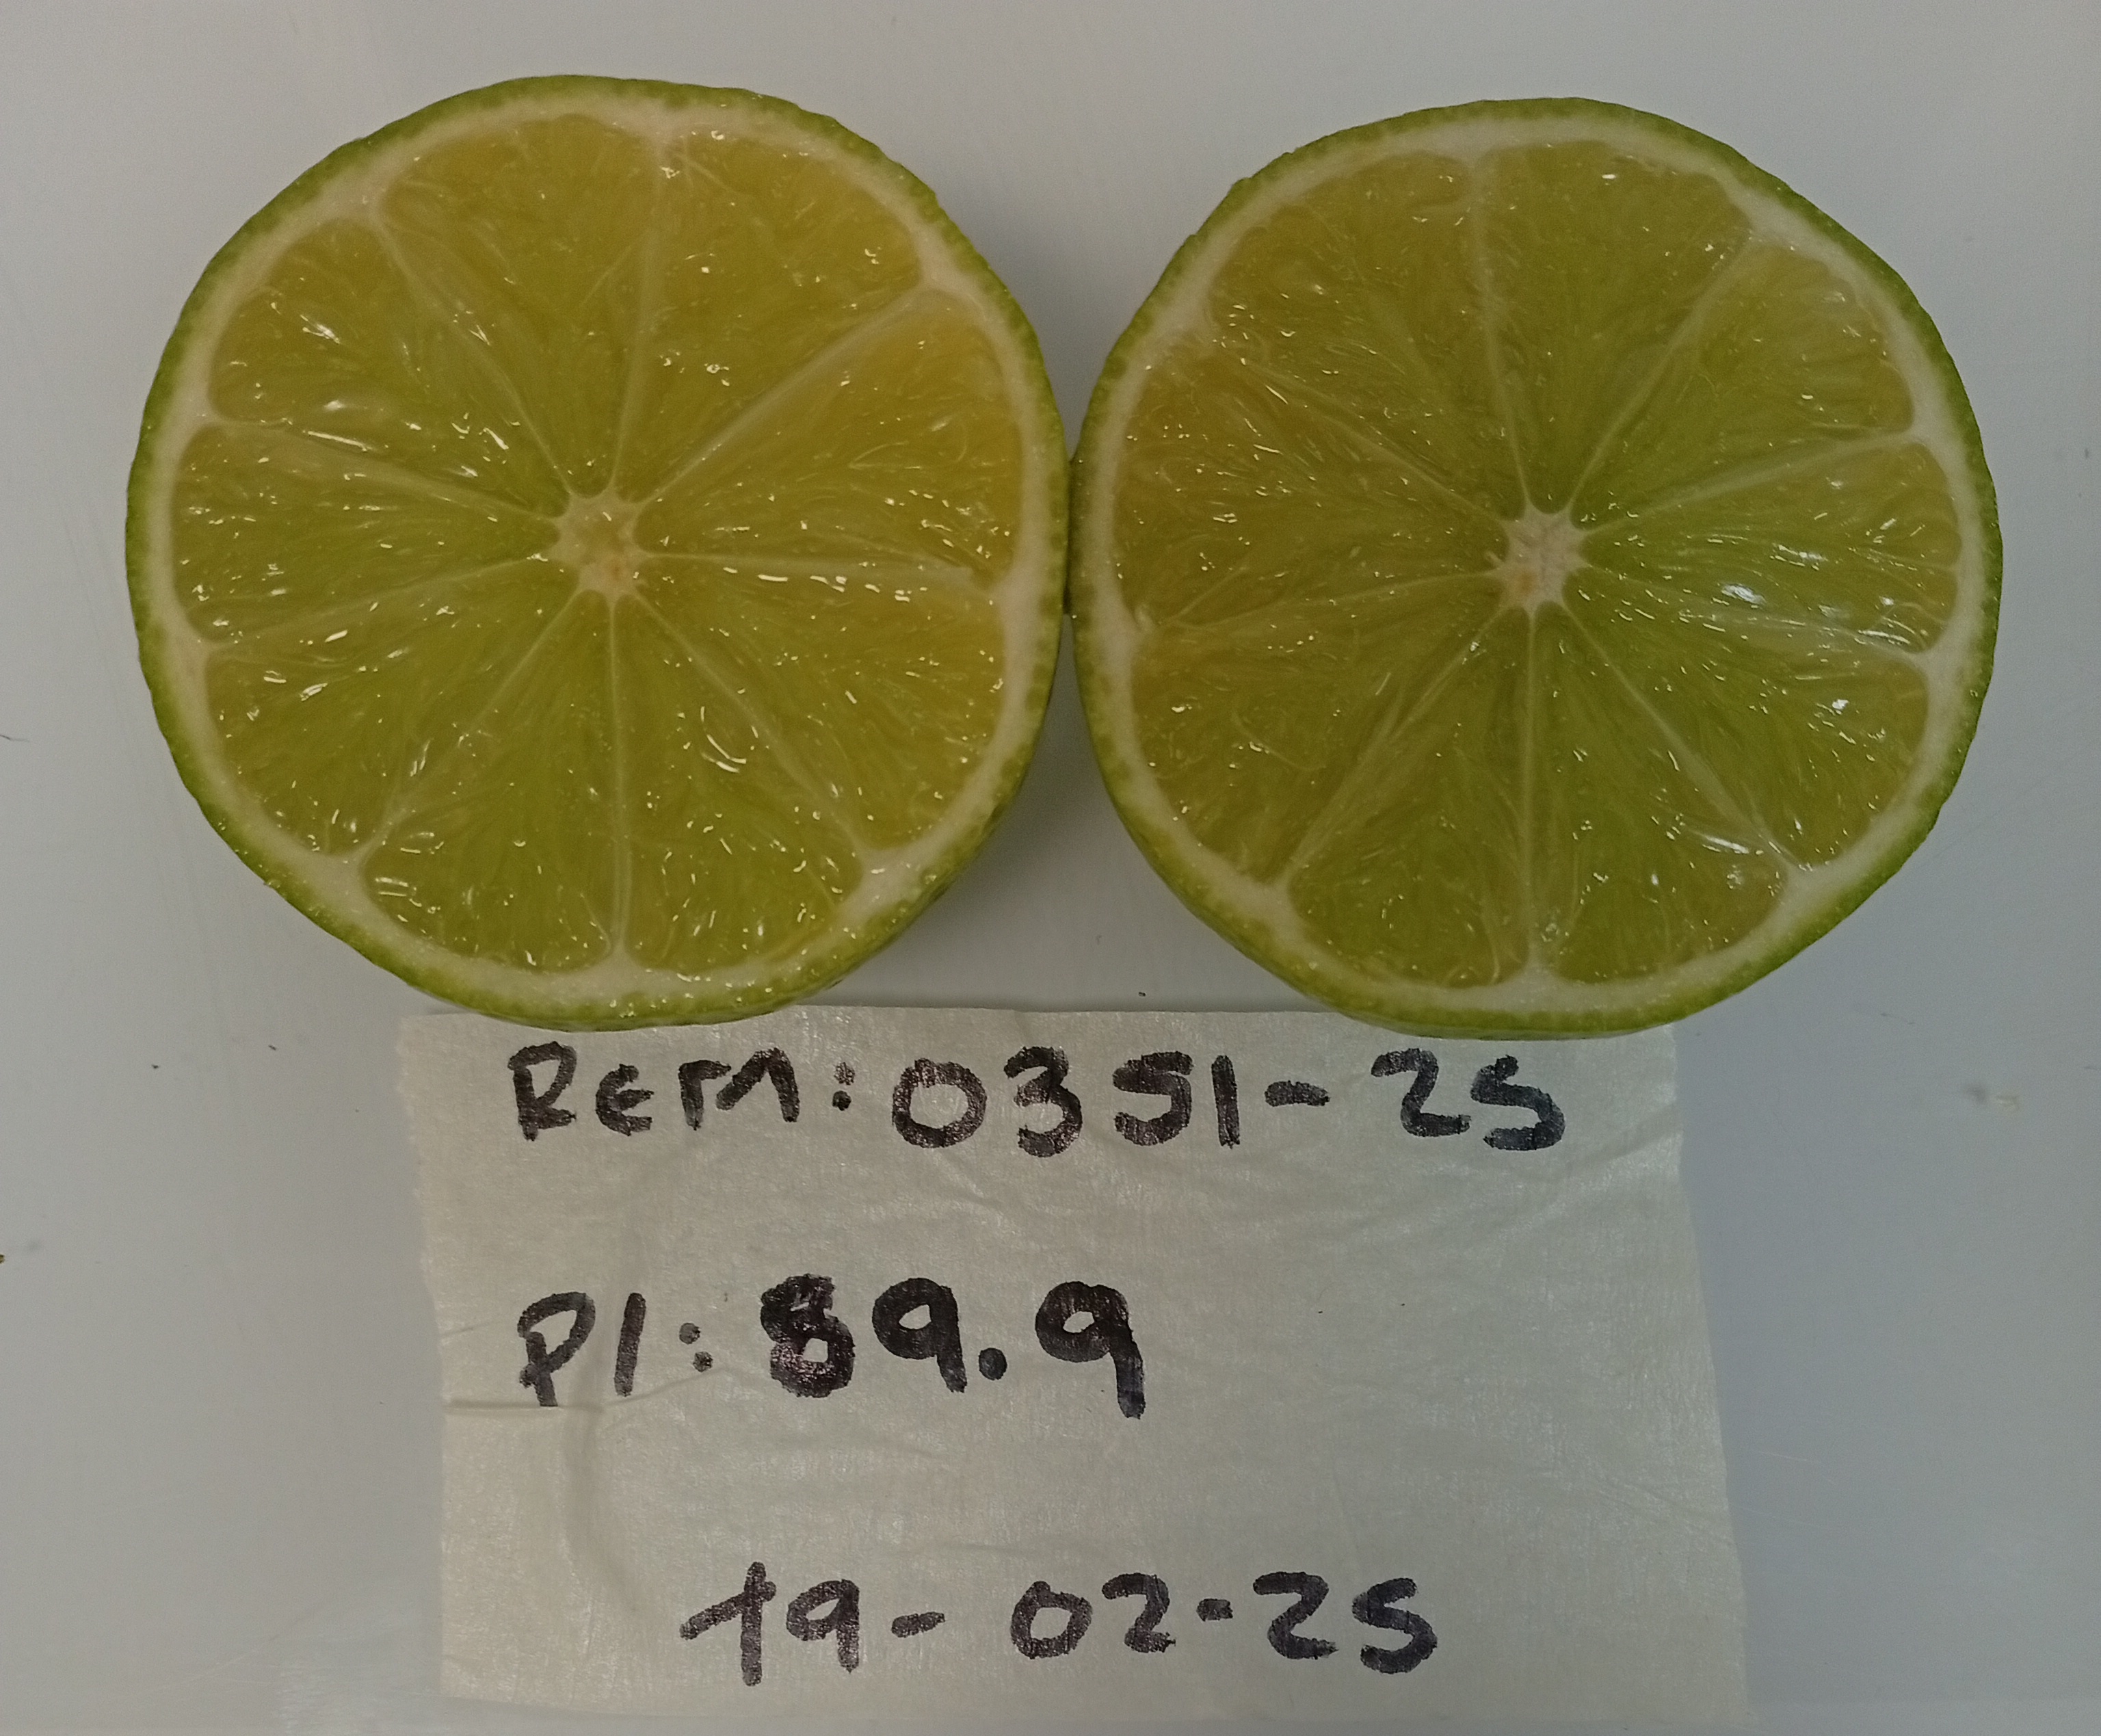 REM: 0351-25
P1: 89.9
19-02-25